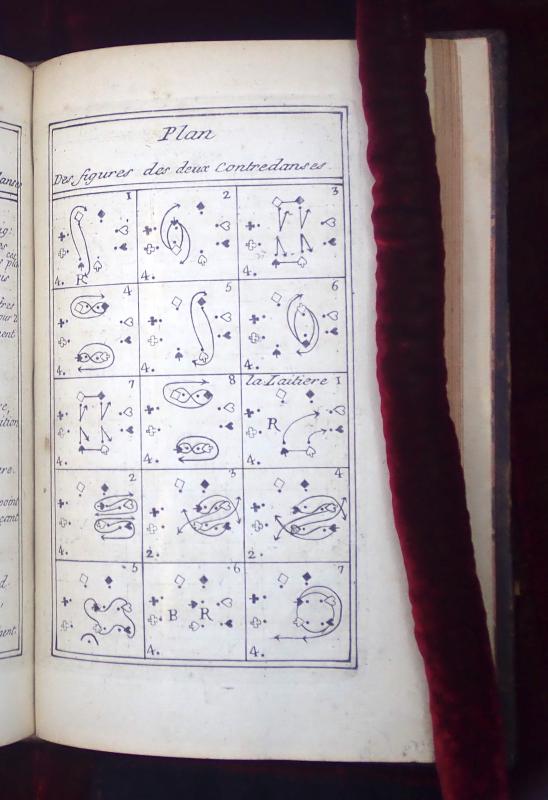 Plan
Des figures des deux Contredanses.
1 2 3
4. R 4. 4.
4 5 6
4. 4. 4.
7 8 la Laitiere 1
R
4. 4. 4.
2 3 4
4. 2. 2.
5 6 7
B R
4. 4.